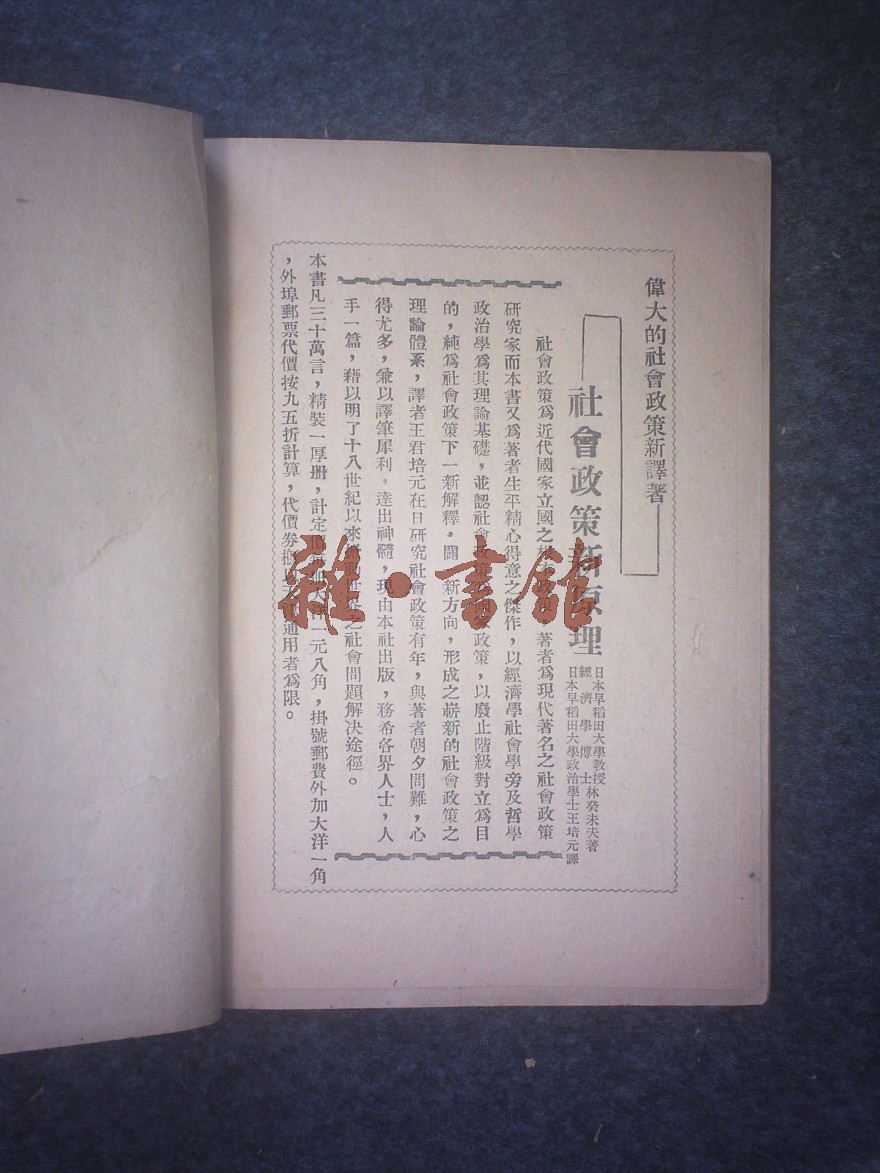 偉大的社會政策新譯著
社會政策新原理
日本早稻田大學教授
經濟學博士林癸未夫著
日本早稻田大學政治學士王培元譯
社會政策為近代國家立國之 著者為現代著名之社會政策
研究家而本書又為著者生平精心得意之傑作，以經濟學社會學旁及哲學
政治學為其理論基礎，並認社會政策 國家政策，以廢止階級對立為目
的，純為社會政策下一新解釋。闢 新方向，形成之嶄新的社會政策之
理論體系，譯者王君培元在日研究社會政策有年，與著者朝夕問難，心
得尤多，兼以譯筆犀利。達出神髓，現由本社出版，務希各界人士，人
手一篇，藉以明了十八世紀以來 世界之社會問題解决途徑。
本書凡三十萬言，精裝一厚册，計定價 大洋一元八角，掛號郵費外加大洋一角
，外埠郵票代價按九五折計算，代價券 通用者為限。
雜·書館